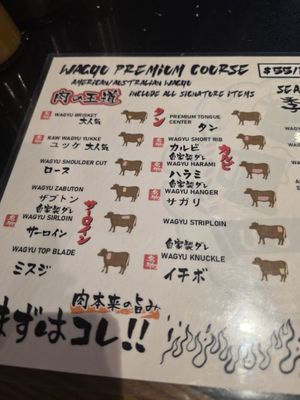 WAGYU PREMIUM COURSE
AMERICAN/AUSTRALIAN WAGYU
肉の王道
INCLUDE ALL SIGNATURE ITEMS
WAGYU BRISKET
大人気
タン
PREMIUM TONGUE CENTER
タン
RAW WAGYU YUKKE
ユッケ 大人気
WAGYU SHORT RIB
カルビ
自家製ダレ
カルビ
WAGYU SHOULDER CUT
ロース
WAGYU HARAMI
ハラミ
自家製ダレ
WAGYU ZABUTON
ザブトン
自家製ダレ
サーロイン
WAGYU HANGER
サガリ
WAGYU SIRLOIN
サーロイン
WAGYU STRIPLOIN
自家製ダレ
WAGYU TOP BLADE
ミスジ
WAGYU KNUCKLE
イチボ
肉本来の旨み
まずはコレ!!